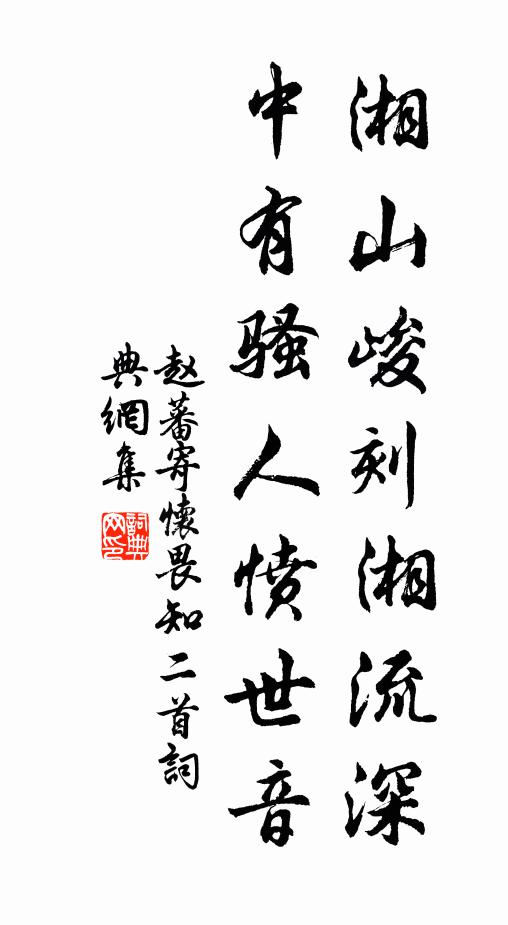 湘山峻刻湘流深
中有骚人憤世音
赵蕃寄懷畏知二首詞
典網集
詞典網印